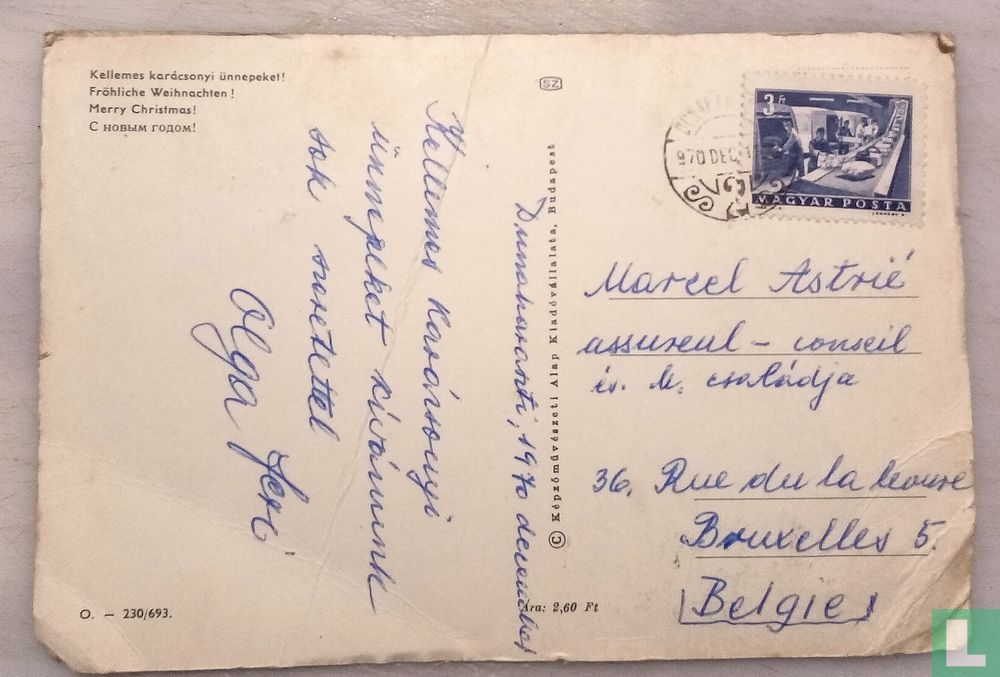 Kellemes karácsonyi ünnepeket!
Fröhliche Weihnachten!
Merry Christmas!
С новым годом!
SZ
970 DEC
3 Ft
MAGYAR POSTA
Kellemes Karácsonyi
ünnepeket kívánunk
sok szeretettel
Olga Feri
Dunaharaszti, 1970 december
© Képzőművészeti Alap Kiadóvállalata, Budapest
Marcel Astrié
assureul - conseil
és. b. családja
36. Rue du la
Bruxelles 5.
Belgie
O. — 230/693.
Ára: 2,60 Ft
L